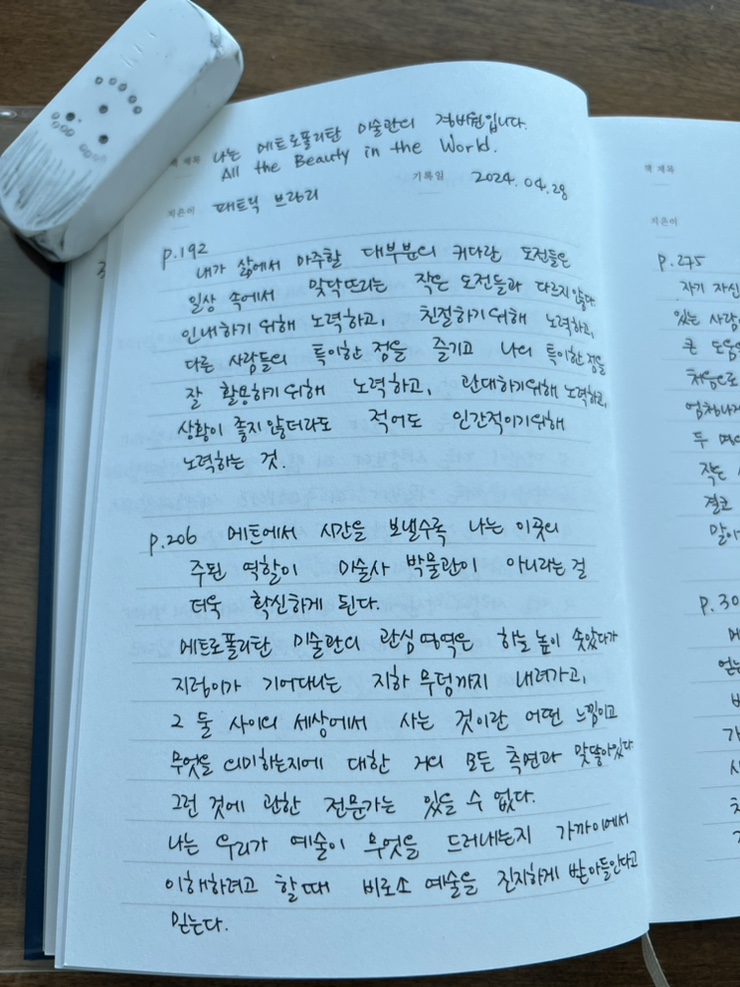 책 제목 나는 메트로폴리탄 미술관의 경비원입니다.
All the Beauty in the World.
기록일 2024.04.28
지은이 패트릭 브링리
p.192
내가 삶에서 마주할 대부분의 커다란 도전들은
일상 속에서 맞닥뜨리는 작은 도전들과 다르지 않다
인내하기 위해 노력하고, 친절하기 위해 노력하고,
다른 사람들의 특이한 점을 즐기고 나의 특이한 점을
잘 활용하기 위해 노력하고, 관대하기 위해 노력하고,
상황이 좋지 않더라도 적어도 인간적이기 위해
노력하는 것.
p.206 메트에서 시간을 보낼수록 나는 이곳의
주된 역할이 미술사 박물관이 아니라는 걸
더욱 확신하게 된다.
메트로폴리탄 미술관의 관심 영역은 하늘 높이 솟았다가
지렁이가 기어다니는 지하 무덤까지 내려가고,
그 둘 사이의 세상에서 사는 것이란 어떤 느낌이고
무엇을 의미하는지에 대한 거의 모든 측면과 맞닿아있다
그런 것에 관한 전문가는 있을 수 없다.
나는 우리가 예술이 무엇을 드러내는지 가까이에서
이해하려고 할 때 비로소 예술을 진지하게 받아들인다고
믿는다.
책 제목
지은이
p.275
자기 자신
있는 사람
큰 도움
처음으로
엄청나게
두
작은
결코
말이
p.30